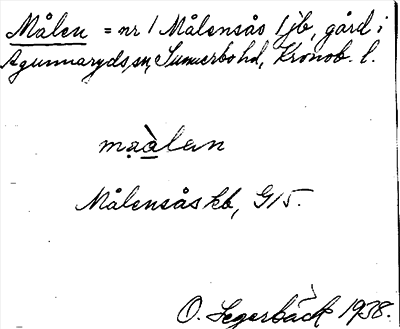 Målen = nr 1 Målensås 1 jb, gård i
Agunnaryds sn, Sunnerbo hd, Kronob. l.
mạàlen
Målensås kb, G15.
O. Segerbäck 1938.